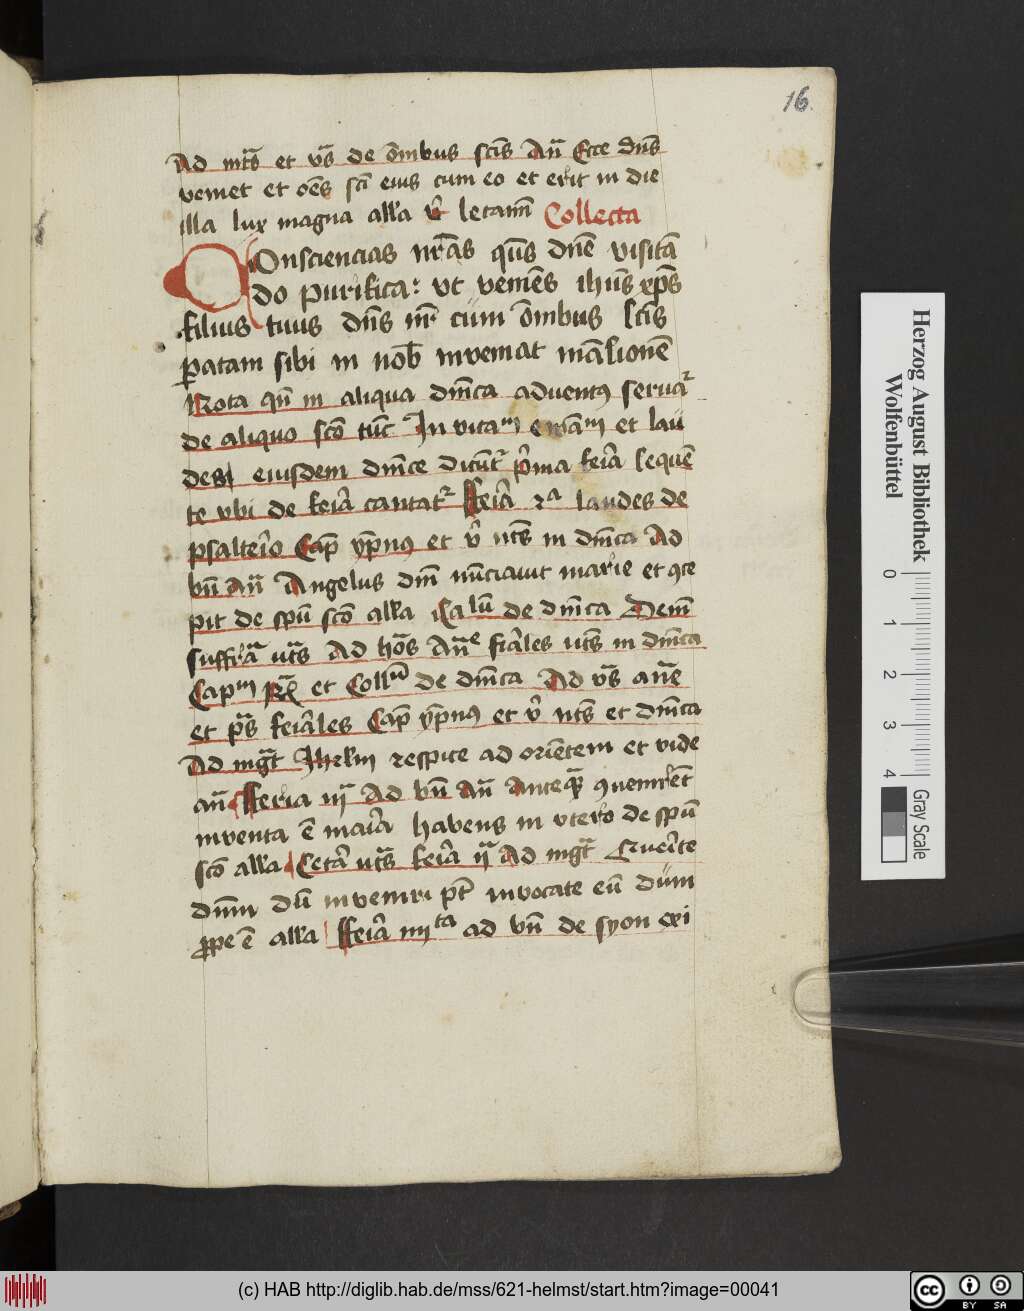 16
Ad mt̄s et vs̄ de om̄ibus sctīs An̄ Ecce dn̄s
veniet et oēs scī eius cum eo et erit in die
illa lux magna allā v̉ letamī Collecta
Consciencias nrās qs̄ dnē visitā
do purifica: vt veniēs ihūs xp̄s
filius tuus dn̄s nr̄ cum om̄ibus sctīs
paratam sibi in nob̄ inveniat māsionē
Nota qn̄ in aliqua dn̄ica aduentus seruat᷑
de aliquo scō tūc In vitam et lau
des eiusdem dn̄ice dicūt᷑ p̉ma feīa sequē
te vbi de feīa cantat᷑ Feīa 2a laudes de
psalteīo Cap̄ yp̄nus et v̉ nt̄s in dn̄ica Ad
bn̄ An̄ Angelus dnī nūciauit marie et 9ce
pit de spū scō allā de dn̄ica Deīn
suffrā vt̄s Ad hōs An̄e fiāles vt̄s in dn̄ica
Capm Rx̄ et Collm de dn̄ica Ad vs̄ anē
et ps̄ feīales Cap̄ yp̄nus et v̉ nt̄s et dn̄ica
Ad mgt̄ Ihrlm respice ad oriētem et vide
an̄ Feria iij Ad bn̄ An̄ Anteq̄ 9uenirēt
inventa ē maīa habens in vtero de spū
scō allā Cetā vt̄s feīa ij Ad mgt̄ Queīte
dnm̄ dū inveniri pt̄ invocate eū dum
ꝓpe ē allā Feīa iiijta ad bn̄ de syon exi
Herzog August Bibliothek
Wolfenbüttel
0 1 2 3 4
Gray Scale
(c) HAB http://diglib.hab.de/mss/621-helmst/start.htm?image=00041
cc BY SA